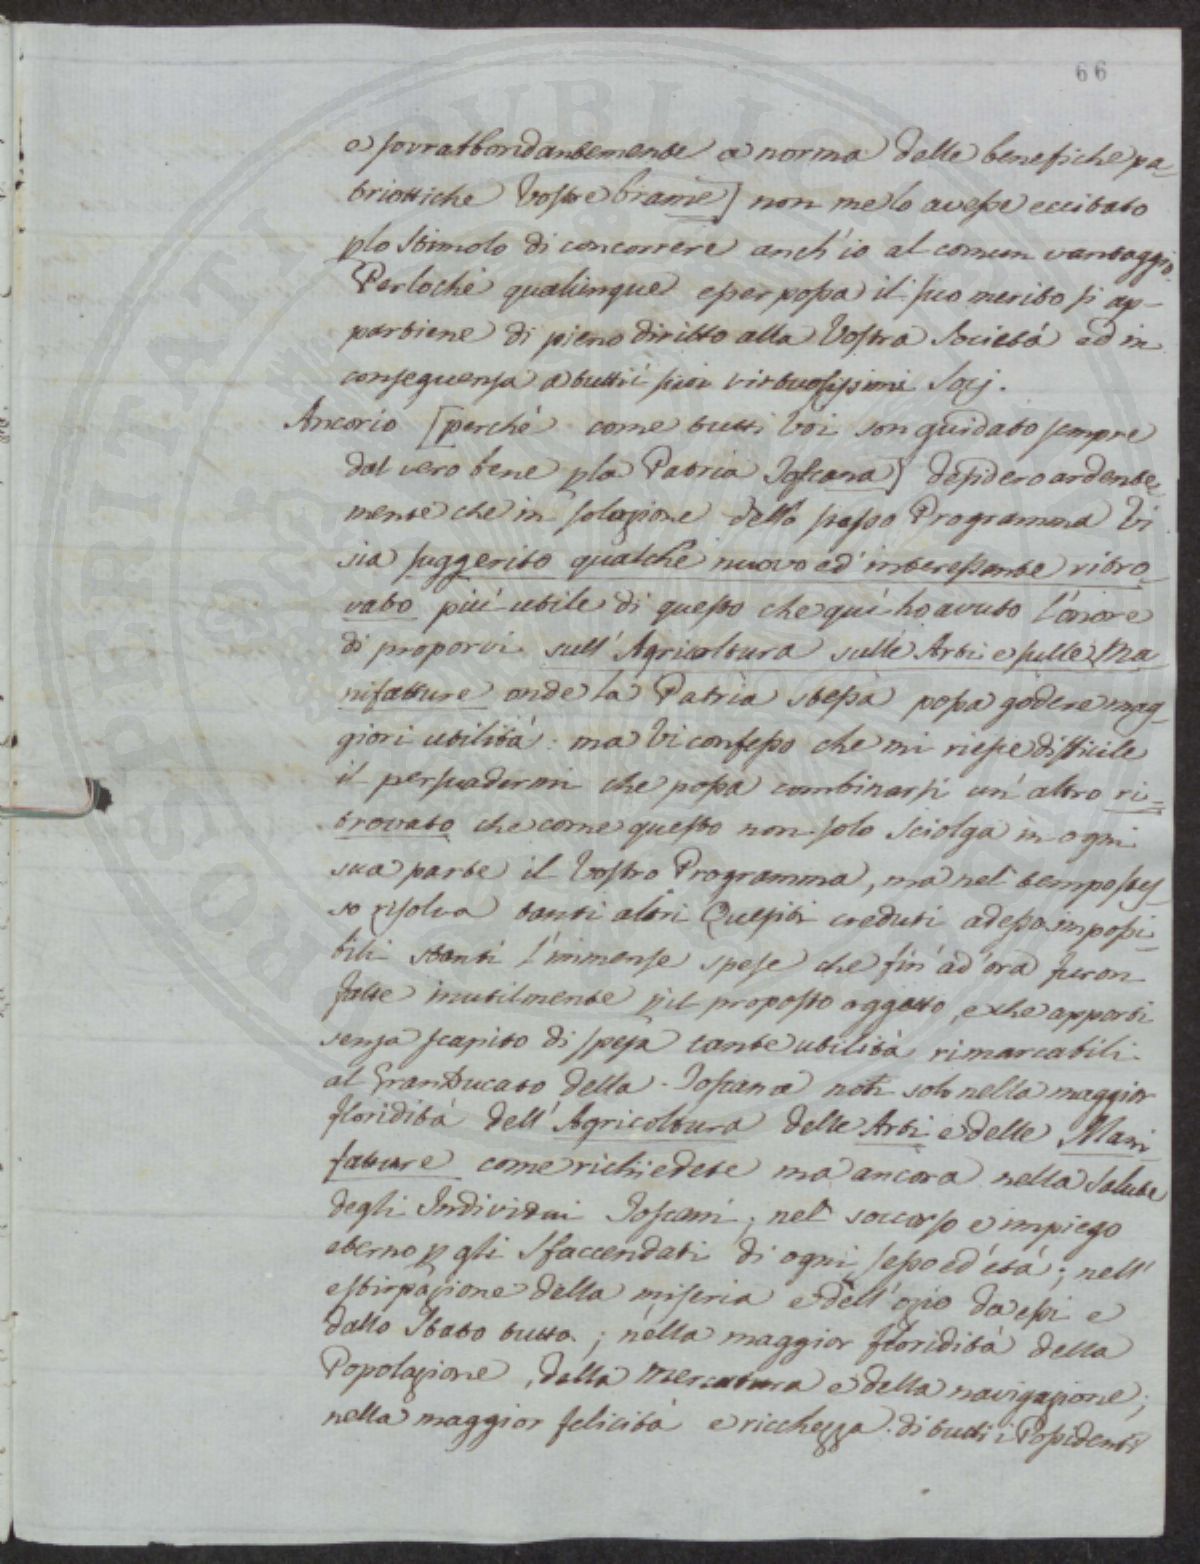 66
e sovrabbondantemente a norma delle benefiche pa-
triottiche Vostre brame] non me lo avesse eccitato
p lo stimolo di concorrere anch'io al comun vantaggio.
Perlochè qualunque esser possa il suo merito si ap-
partiene di pieno diritto alla Vostra Società ed in
conseguenza a tutti i suoi virtuosissimi Socj.
Ancorio [perchè come tutti Voi son guidato sempre
dal vero bene p la Patria Toscana] desidero ardente
mente che in soluzione dello stesso Programma Vi
sia suggerito qualche nuovo ed interessante ritro-
vato più utile di questo che quì ho avuto l'onore
di proporvi sull'Agricoltura sulle Arti e sulle Ma
nifatture onde la Patria stessa possa godere mag-
giori utilità: ma Vi confesso che mi riesce difficile
il persuadermi che possa combinarsi un'altro ri=
trovato che come questo non solo sciolga in ogni
sua parte il Vostro Programma, ma nel tempo stes
so risolva tanti altri Quesiti creduti adesso impossi-
bili stanti l'immense spese che fin ad'ora furon
fatte inutilmente p il proposto oggetto, e che apporti
senza scapito di spesa tante utilità rimarcabili
al GranDucato della Toscana non solo nella maggior
floridità dell'Agricoltura delle Arti e delle Mani
fatture come richiedete ma ancora nella salute
degli Individui Toscani; nel soccorso e impiego
eterno p gli sfaccendati di ogni sesso ed'età; nell'
estirpazione della miseria e dell'ozio da essi e
dallo Stato tutto; nella maggior floridità della
Popolazione, della mercatura e della navigazione;
nella maggior felicità e ricchezza di tutti i Possidenti
PROSPERITATI PUBLICAE